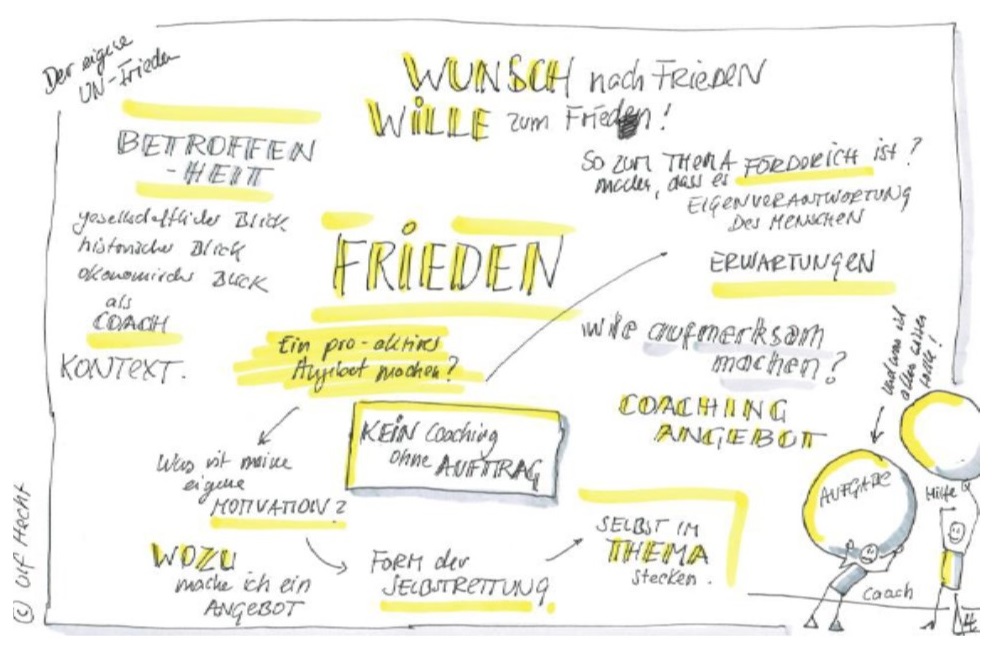 Der eigene
UN-Frieden
WUNSCH nach FRIEDEN
WILLE zum Frieden!
BETROFFEN
-HEIT
gesellschaftlicher Blick
historischer Blick
ökonomischer Blick
als
COACH
KONTEXT.
FRIEDEN
So zum THEMA FÖRDERLICH ist?
machen, dass es
EIGENVERANTWORTUNG
DES MENSCHEN
ERWARTUNGEN
Ein pro-aktives
Angebot machen?
wie aufmerksam
machen?
COACHING
ANGEBOT
KEIN Coaching
ohne AUFTRAG
Was ist meine
eigene
MOTIVATION?
WOZU
mache ich ein
ANGEBOT
FORM der
SELBSTRETTUNG.
SELBST IM
THEMA
stecken.
und was ich
alles
AUFGABE
Hilfe
Coach
© Ulf Hecht